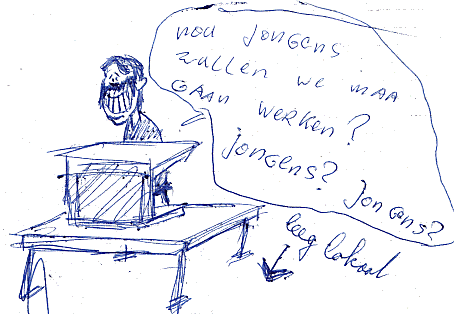 nou jongens
zullen we maa
gaan werken?
jongens? jongens?
leeg lokaal